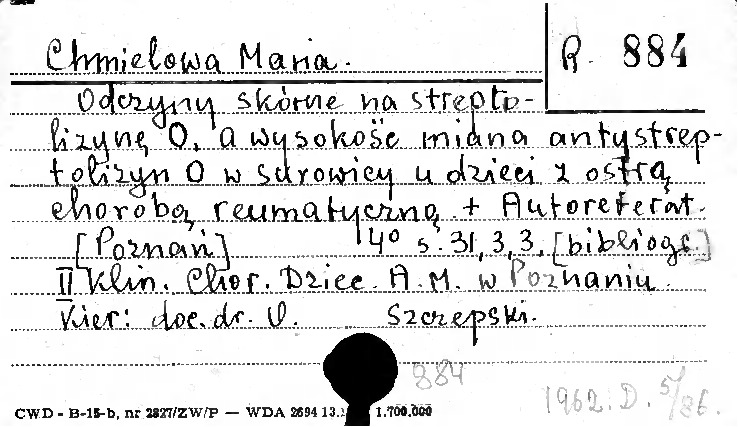 Chmielowa Maria.
R. 884
Odczyny skórne na strepto-
lizynę O, a wysokość miana antystrep-
tolizyn O w surowicy u dzieci z ostrą
chorobą reumatyczną + Autoreferat.
[Poznań] 4° s. 31, 3, 3, [bibliogr.]
II Klin. Chor. Dziec. A. M. w Poznaniu.
Kier: doc. dr. O. Szczepski.
884
1962. D. 5/86.
CWD - B-15-b, nr 2827/ZW/P — WDA 2694 13. 1.700.000